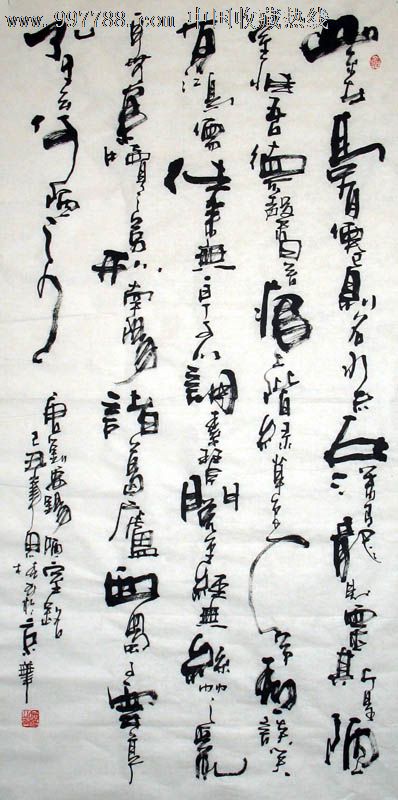 www.997788.com 中国收藏热线
山不在高有僊則名水不在深有龍則靈斯是陋
室惟吾德馨苔痕上階綠草色入簾青談笑
有鴻儒往来無白丁可以調素琴閱金經無絲竹之亂
耳無案牘之勞形南陽諸葛廬西蜀子雲亭
孔子云何陋之有
唐劉禹錫陋室銘
己丑 於京華